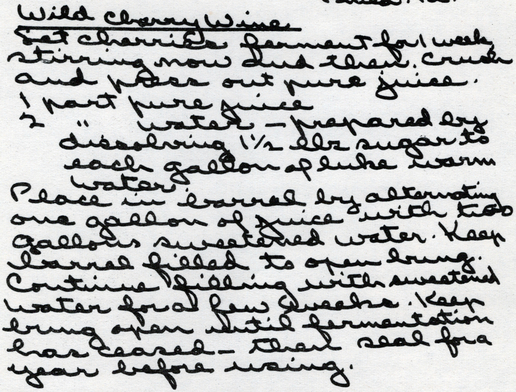 Wild Cherry Wine
Let cherries ferment for 1 week,
stirring now and then. Crush
and press out pure juice.
1 part pure juice
2 " water - prepared by
dissolving 1½ lbs sugar to
each gallon of luke warm
water.
Place in barrel by alternating
one gallon of juice with two
gallons sweetened water. Keep
barrel filled to open bung.
Continue filling with sweetened
water for a few weeks. Keep
bung open until fermentation
has ceased - then seal for a
year before using.